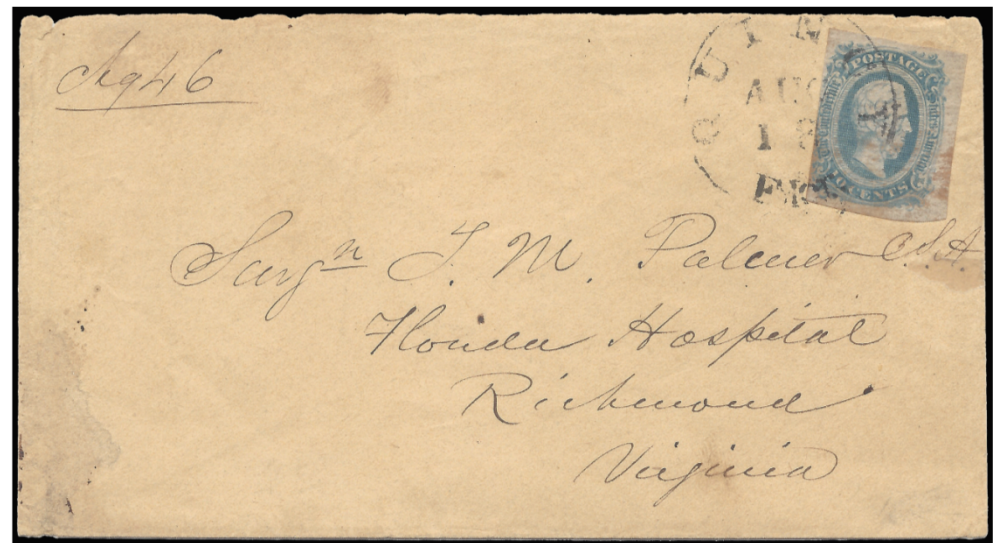 46
QUIN
AUG
18
POSTAGE
TEN CENTS
Surgn T. M. Palmer C.S.A.
Florida Hospital
Richmond
Virginia